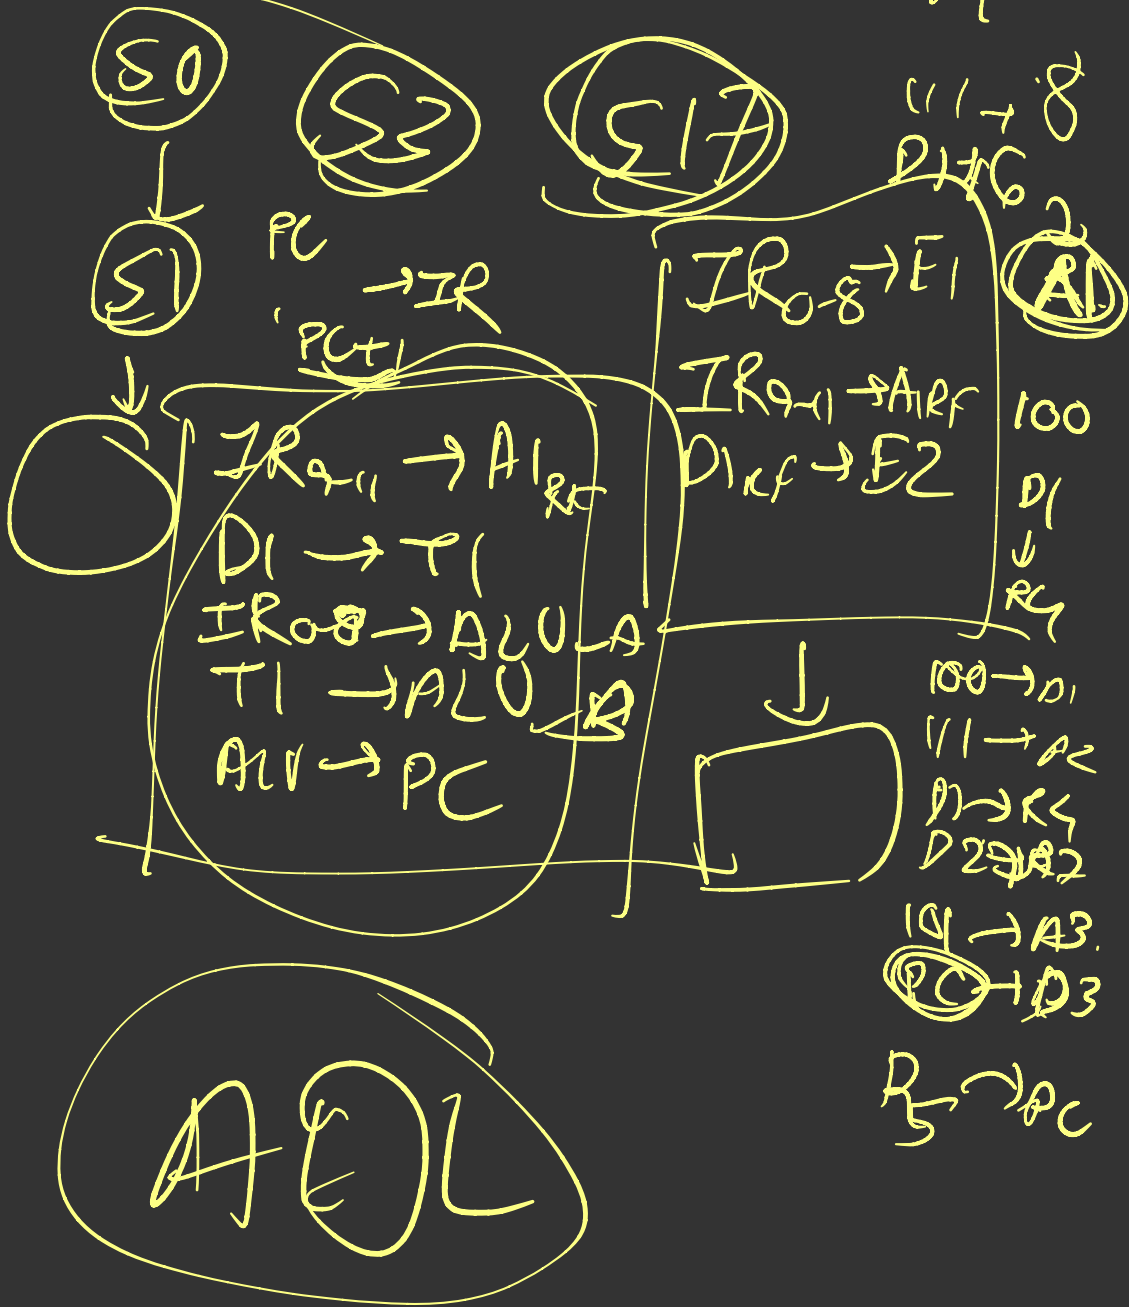 S0
S2
S17
111 → 8
S1
PC
→ IR
PC+1
IR0-8 → E1
A1
IR9-11 → A1RF
D1RF → E2
100
D1
↓
R4
IR9-11 → A1RF
D1 → T1
IR0-8 → ALU_A
T1 → ALU_B
ALU → PC
100 → D1
111 → A2
D1 → R4
→ A3
PC → D3
R5 → PC